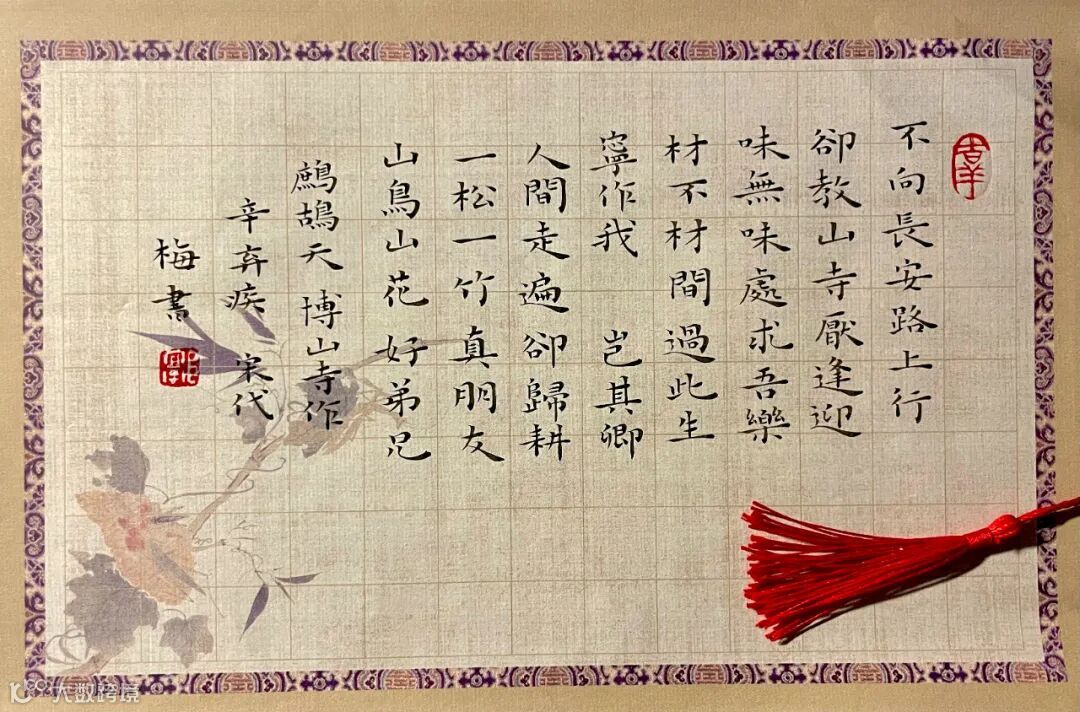 不向長安路上行
卻教山寺厭逢迎
味無味處求吾樂
材不材間過此生
寧作我 豈其卿
人間走遍卻歸耕
一松一竹真朋友
山鳥山花好弟兄
鷓鴣天 博山寺作
辛弃疾 宋代
梅書
大数跨境